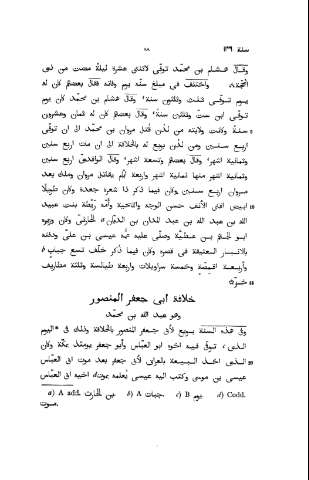 سنة ١٣٦ ٨٨
وقال هشام بن محمد توفّى لاثنتى عشرة ليلة مضت من ذى
الحجّة واختلف فى مبلغ سنّه يوم وفاته فقال بعضهم كان له
يوم توفّى ثلث وثلثون سنة وقال هشام بن محمد كان يوم
توفّى ابن ستّ وثلثين سنة وقال بعضهم كان له ثمان وعشرون
سنة وكانت ولايته من لدن قُتل مروان بن محمد الى ان توفّى
اربع سنين ومن لدن بويع له بالخلافة الى ان مات اربع سنين
وثمانية اشهر وقال بعضهم وتسعة اشهر وقال الواقدىّ اربع سنين
وثمانية اشهر منها ثمانية اشهر واربعة ايّام يقاتل مروان وملك بعد
مروان اربع سنين وكان فيما ذكر ذا شعرة جعدة وكان طويلا
ابيض اقنى الأنف حسن الوجه واللحية وأمّه ريطة بنت عبيد
الله بن عبد الله بن عبد المدان بن الديّان الحارثىّ وكان وزيره
ابو الجهم بن عطيّة وصلّى عليه عمّه عيسى بن علىّ ودفنه
بالانبار العتيقة فى قصره وكان فيما ذكر خلّف تسع جباب
وأربعة اقمصة وخمسة سراويلات واربعة طيالسة وثلثة مطاريف
خزّ
خلافة ابى جعفر المنصور
وهو عبد الله بن محمد
وفى هذه السنة بويع لأبى جعفر المنصور بالخلافة وذلك فى اليوم
الذى توفّى فيه اخوه ابو العبّاس وأبو جعفر يومئذ بمكّة وكان
الذى اخذ البيعة بالعراق لأبى جعفر بعد موت ابى العبّاس
عيسى بن موسى وكتب اليه عيسى يُعلمه بموت اخيه ابى العبّاس
a) A add. بن الحارث. b) A جبّات. c) B يوم. d) Codd.
موت.